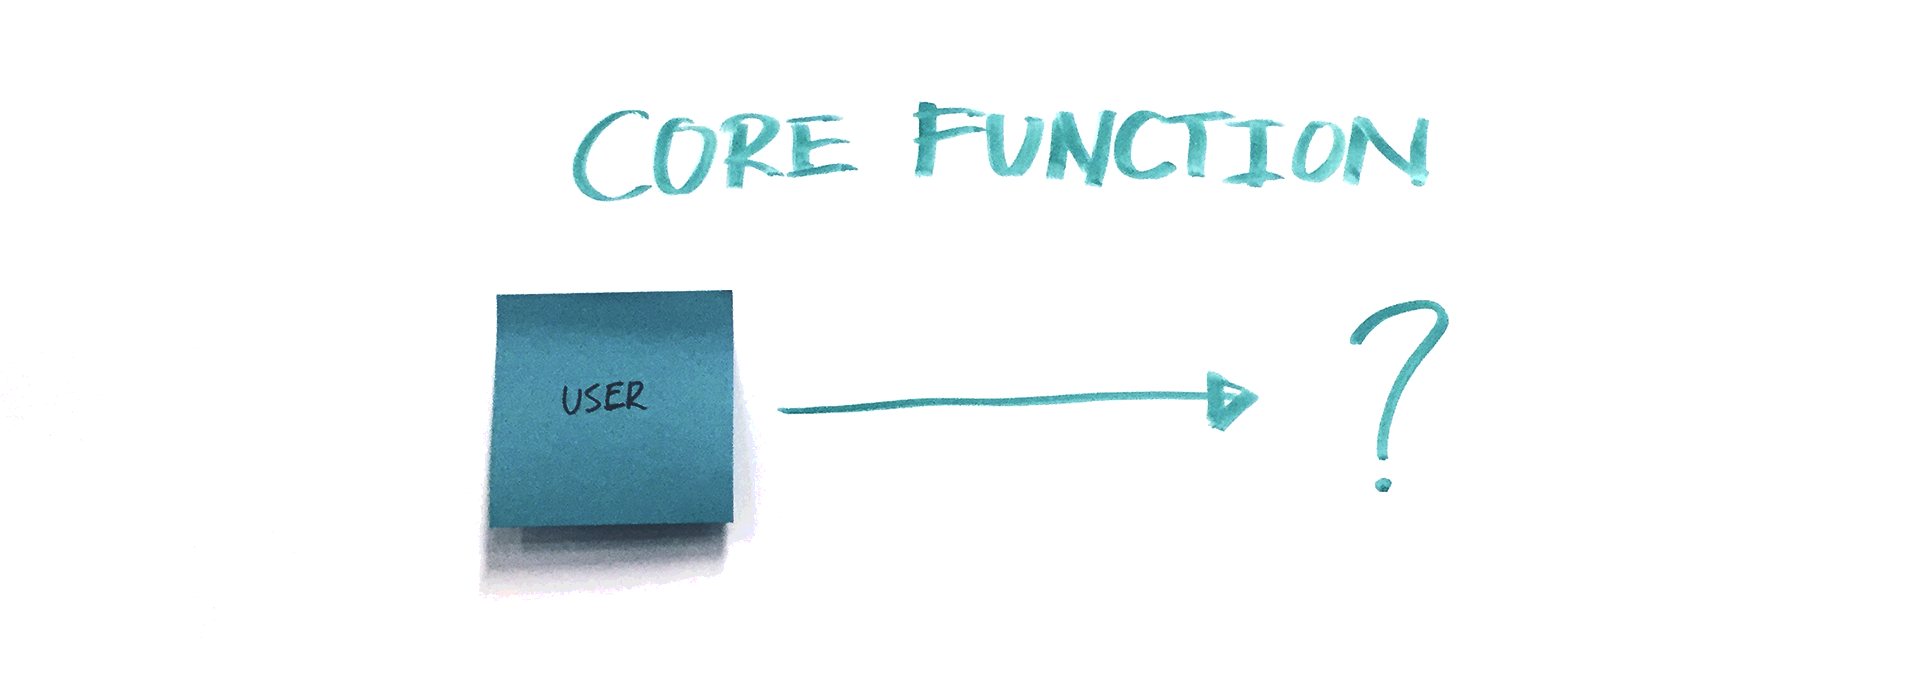 CORE FUNCTION
USER
?